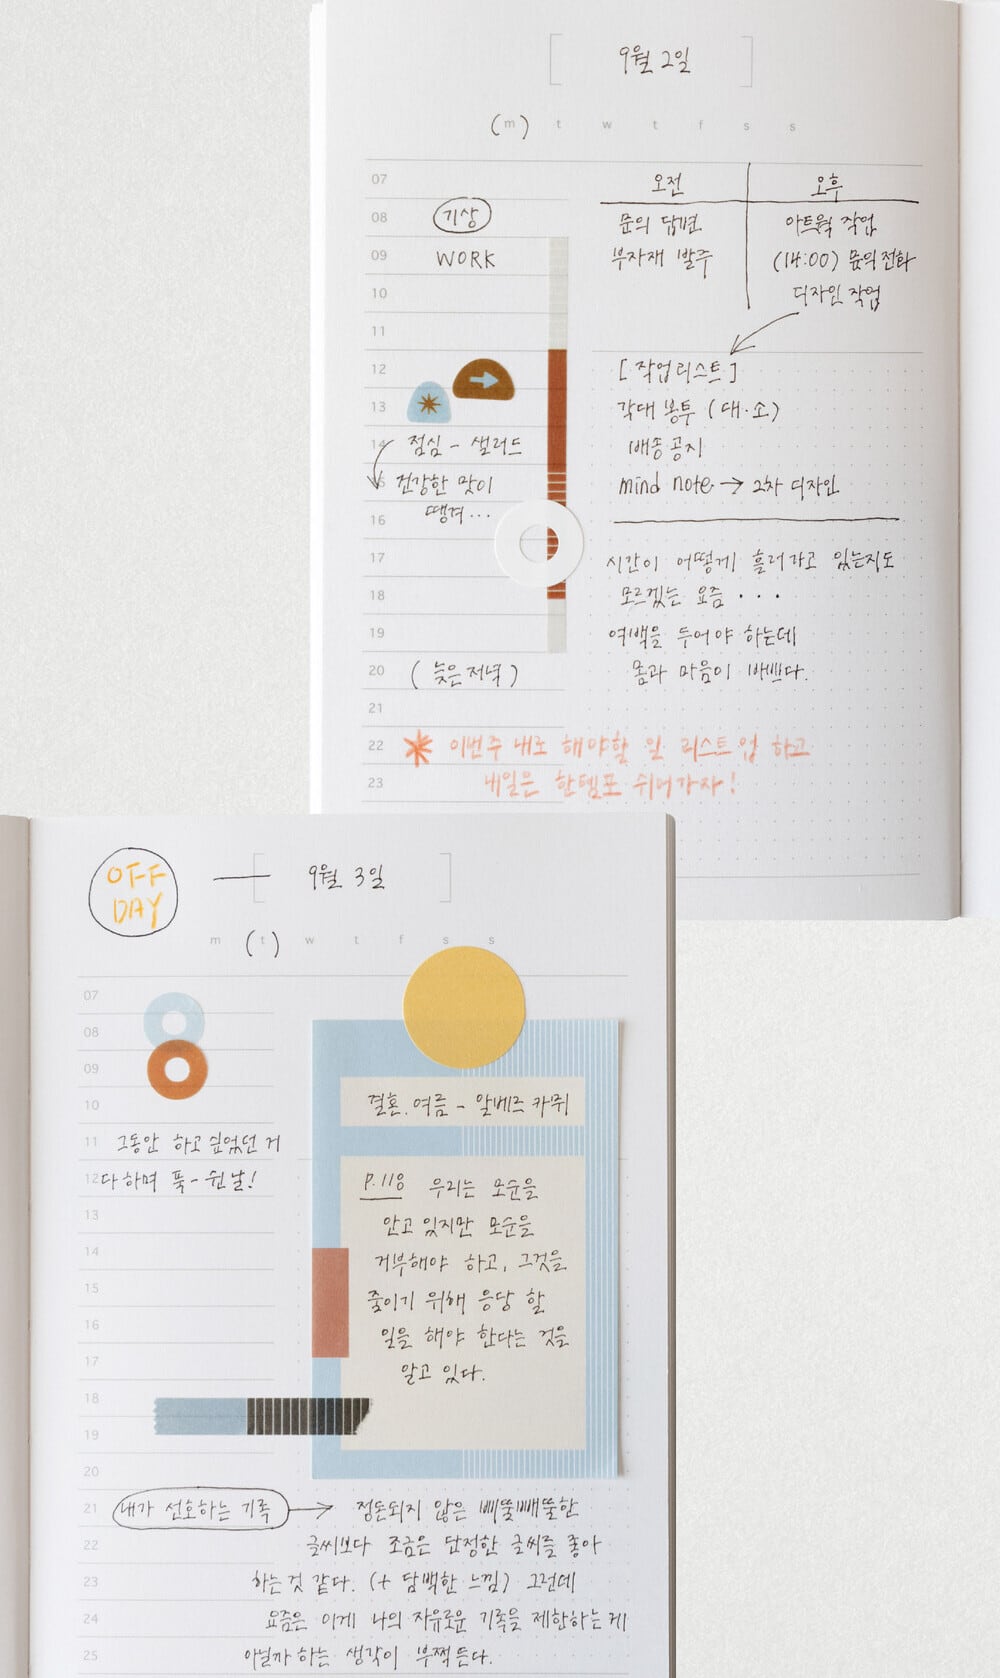 9월 2일
(m) t w t f s s
07
08 기상
09 WORK
10
11
12
13
14 점심 - 샐러드
15 건강한 맛이
땡겨...
16
17
18
19
20 (늦은 저녁)
21
22
23
오전 오후
문의 답변 아트웍 작업
부자재 발주 (14:00) 문의전화
디자인 작업
[작업리스트]
각대봉투 (대·소)
배송공지
mind note → 2차 디자인
시간이 어떻게 흘러가고 있는지도
모르겠는 요즘 ···
여백을 두어야 하는데
몸과 마음이 바쁘다.
이번주 내로 해야할 일 리스트업 하고
내일은 한템포 쉬어가자!
OFF
DAY
9월 3일
m (t) w t f s s
07
08
09
10
11 그동안 하고 싶었던 거
12 다하며 푹-쉰날!
13
14
15
16
17
18
19
20
결혼.여름 - 알베르 카뮈
P.118 우리는 모순을
안고 있지만 모순을
거부해야 하고, 그것을
줄이기 위해 응당 할
일을 해야 한다는 것을
알고 있다.
21 내가 선호하는 기록 → 정돈되지 않은 삐뚤빼뚤한
22 글씨보다 조금은 단정한 글씨를 좋아
23 하는것 같다. (+ 담백한 느낌) 그런데
24 요즘은 이게 나의 자유로운 기록을 제한하는게
25 아닐까 하는 생각이 부쩍 든다.